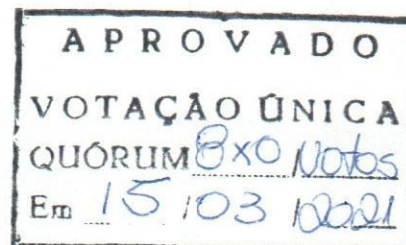 APROVADO
VOTAÇÃO ÚNICA
QUÓRUM 8x0 Votos
Em 15/03/2021